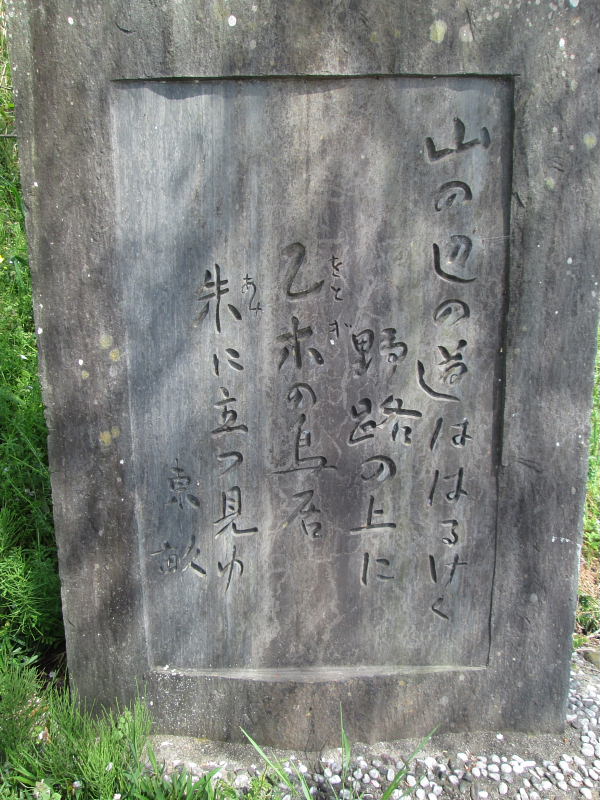 山の辺の道ははるけく
野路の上に
乙木の鳥居
をとぎ
朱に立つ見ゆ
あけ
東畝